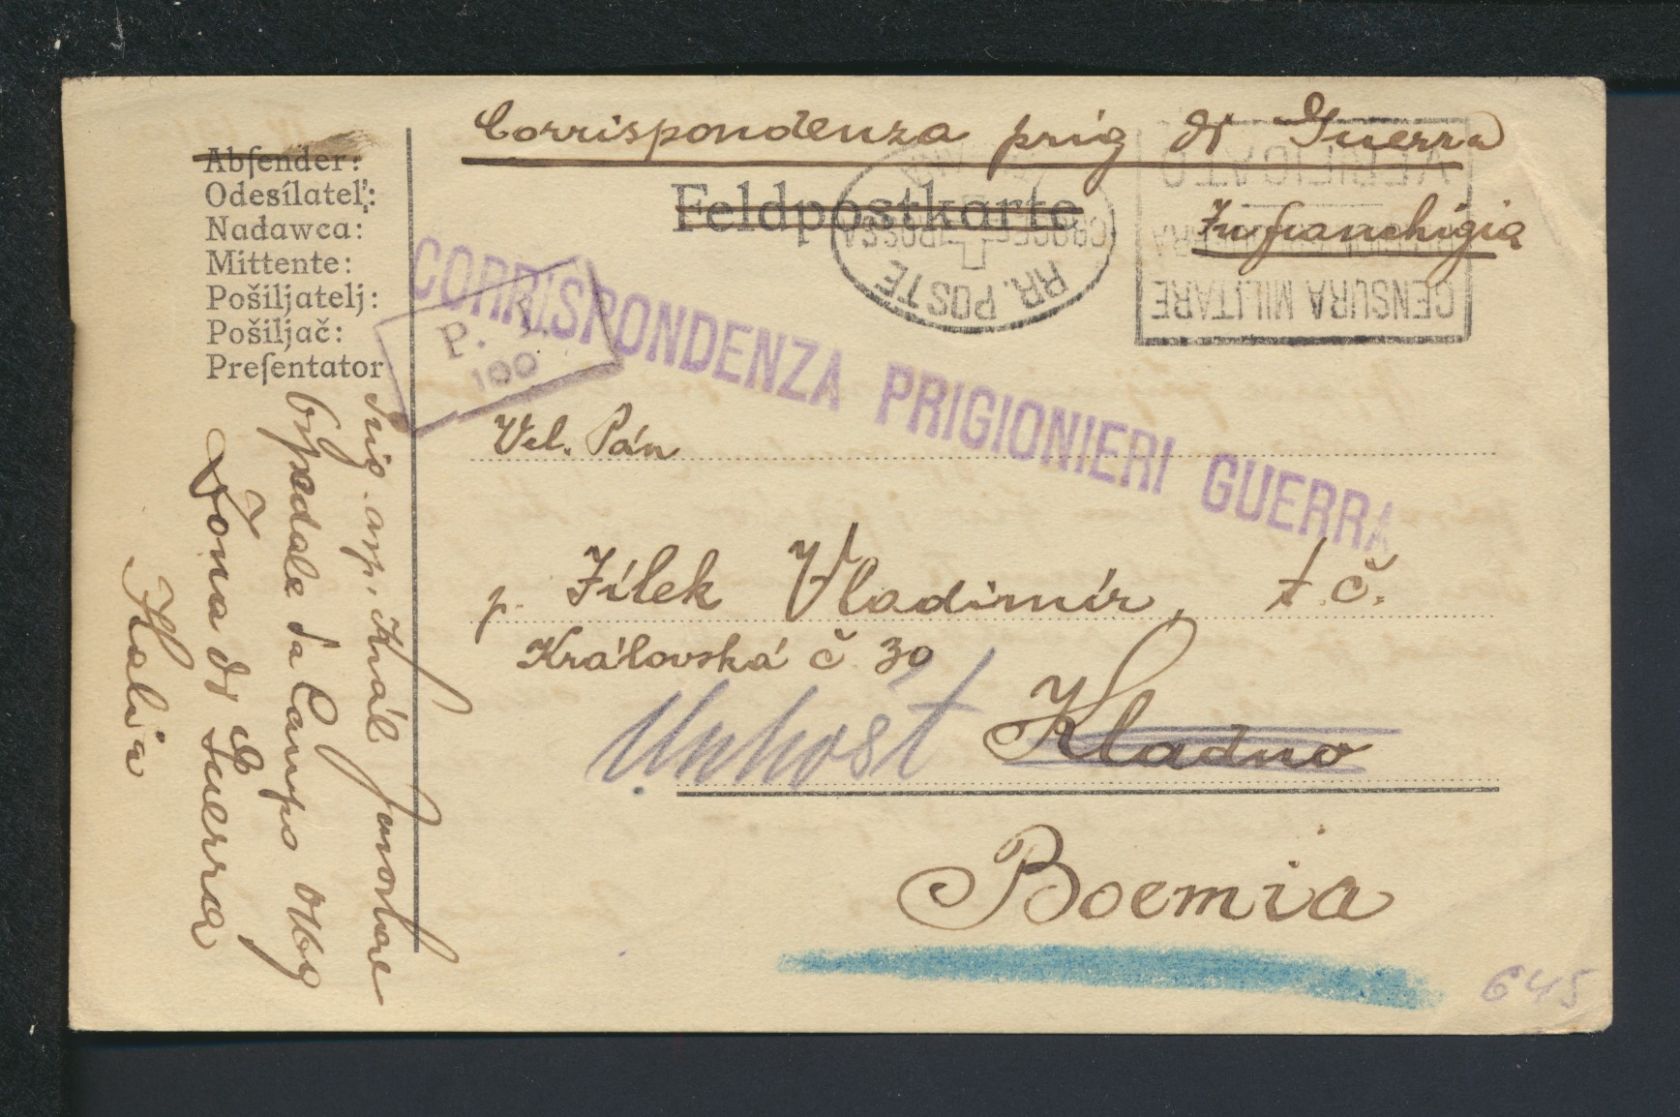 Corrispondenza prig di Guerra
In franchigia
Feldpostkarte
Abſender:
Odesílateľ:
Nadawca:
Mittente:
Pošiljatelj:
Pošiljač:
Preſentator
RR. POSTE
CROCE ROSSA
VERIFICATO
CENSURA MILITARE
CORRISPONDENZA PRIGIONIERI GUERRA
P.
100
Vel. Pán
p. Jílek Vladimír, t. č.
Královská č 39
Unhošt Kladno
Boemia
645
Prig. asp. Král
Ospedale da Campo 0169
Zona di Guerra
Italia